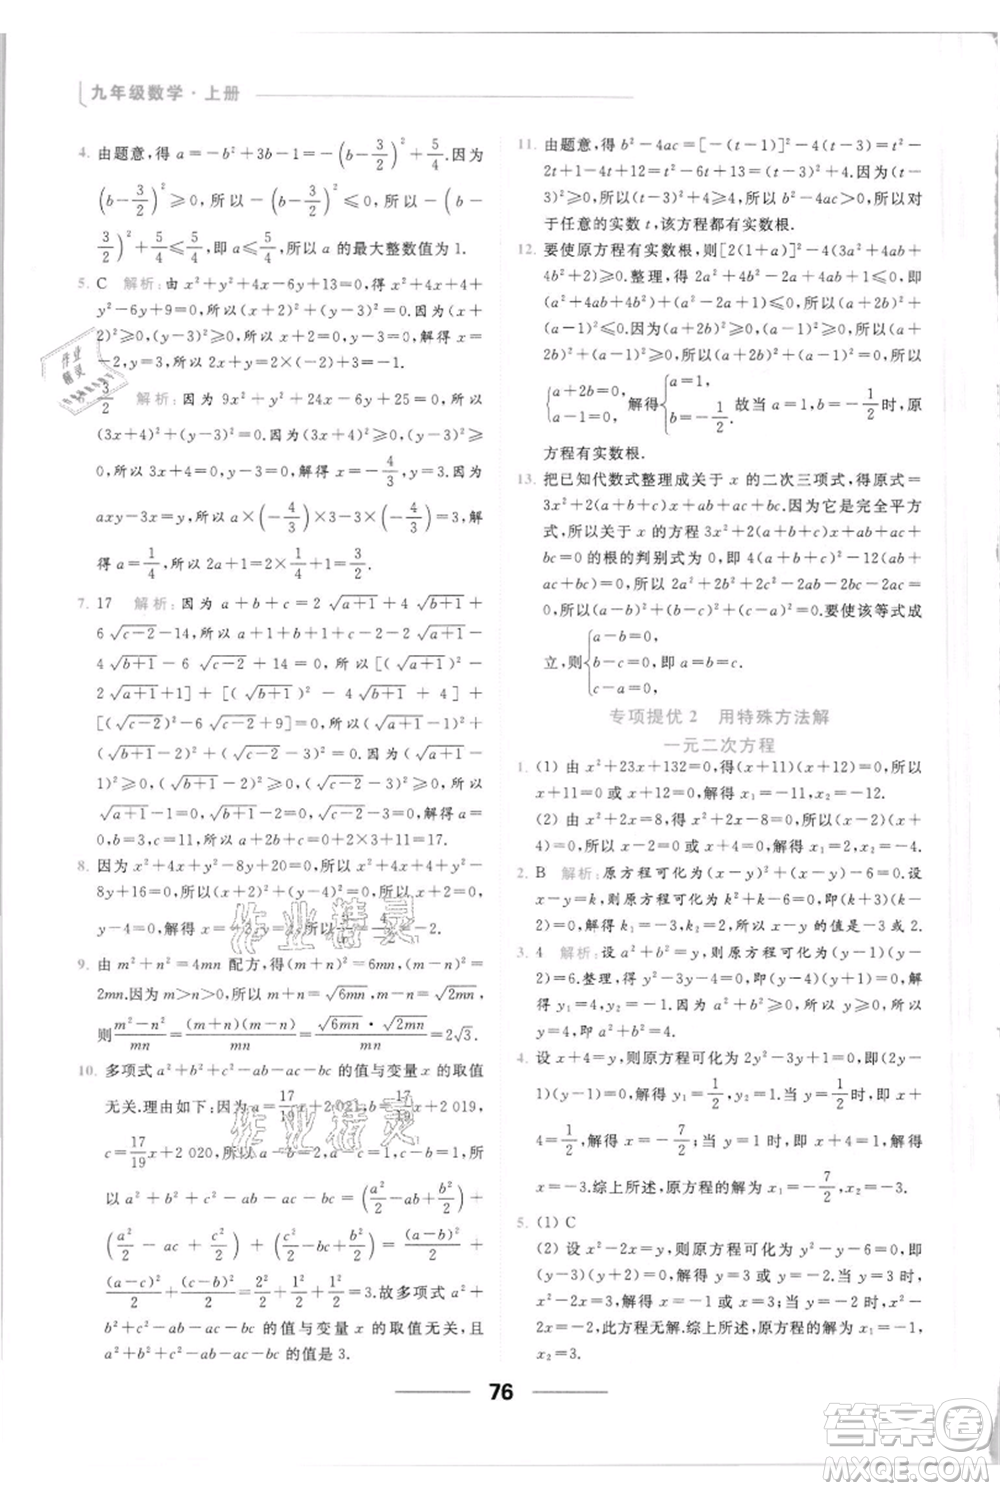 九年级数学·上册
4. 由题意,得 a=-b²+3b-1=-(b-3/2)²+5/4.因为
(b-3/2)²≥0,所以-(b-3/2)²≤0,所以-(b-
3/2)²+5/4≤5/4,即 a≤5/4,所以 a 的最大整数值为 1.
5. C 解析:由 x²+y²+4x-6y+13=0,得 x²+4x+4+
y²-6y+9=0,所以(x+2)²+(y-3)²=0.因为(x+
2)²≥0,(y-3)²≥0,所以 x+2=0,y-3=0,解得 x=
-2,y=3,所以 2x+y=2×(-2)+3=-1.
3/2 解析:因为 9x²+y²+24x-6y+25=0,所以
(3x+4)²+(y-3)²=0.因为(3x+4)²≥0,(y-3)²≥
0,所以 3x+4=0,y-3=0,解得 x=-4/3,y=3.因为
axy-3x=y,所以 a×(-4/3)×3-3×(-4/3)=3,解
得 a=1/4,所以 2a+1=2×1/4+1=3/2.
7. 17 解析:因为 a+b+c=2√(a+1)+4√(b+1)+
6√(c-2)-14,所以 a+b+c-2√(a+1)-
4√(b+1)-6√(c-2)+14=0,所以[(√(a+1))²-
2√(a+1)+1]+[(√(b+1))²-4√(b+1)+4]+
[(√(c-2))²-6√(c-2)+9]=0,所以(√(a+1)-
1)²+(√(b+1)-2)²+(√(c-2)-3)²=0.因为
(√(a+1)-1)²≥0,(√(b+1)-2)²≥0,(√(c-2)-
3)²≥0,所以√(a+1)-1=0,√(b+1)-2=0,
√(c-2)-3=0,所以√(a+1)=1,√(b+1)=2,
√(c-2)=3,所以 a+1=1,b+1=4,c-2=9,解得 a=
0,b=3,c=11,所以 a+2b+c=0+2×3+11=17.
8. 因为 x²+4x+y²-8y+20=0,所以 x²+4x+4+y²-
8y+16=0,所以(x+2)²+(y-4)²=0.因为(x+
2)²≥0,(y-4)²≥0,所以 x+2=0,
y-4=0,解得 x=-2,y=4.
9. 由 m²+n²=4mn 配方,得(m+n)²=6mn,(m-n)²=
2mn.因为 m>n>0,所以 m+n=√(6mn),m-n=√(2mn),
则(m²-n²)/mn=(m+n)(m-n)/mn=√(6mn)·√(2mn)/mn=2√3.
10. 多项式 a²+b²+c²-ab-ac-bc 的值与变量 x 的取值
无关.理由如下:因为 a=17/19x+2 021,b=17/19x+2 019,
c=17/19x+2 020,所以 a-b=2,a-c=1,c-b=1,所
以 a²+b²+c²-ab-ac-bc=(a²/2-ab+b²/2)+
(a²/2-ac+c²/2)+(b²/2-bc+c²/2)=(a-b)²/2+
(a-c)²/2+(c-b)²/2=2²/2+1²/2+1²/2=3.故多项式 a²+
b²+c²-ab-ac-bc 的值与变量 x 的取值无关,多项式
a²+b²+c²-ab-ac-bc 的值是 3.
11. 由题意,得 b²-4ac=[-(t-1)]²-4(t-3)=t²-
2t+1-4t+12=t²-6t+13=(t-3)²+4.因为(t-
3)²≥0,所以(t-3)²+4≥4,所以 b²-4ac>0,所以对
于任意的实数 t,该方程都有实数根.
12. 要使原方程有实数根,则[2(1+a)]²-4(3a²+4ab+
4b²+2)≥0.整理,得 2a²-2a+4ab+4b²+1≤0,所以
(a²+4ab+4b²)+(a²-2a+1)≤0,所以(a+2b)²+
(a-1)²≤0.因为(a+2b)²≥0,(a-1)²≥0,所以
{a+2b=0, a-1=0, 解得{a=1, b=-1/2. 故当 a=1,b=-1/2 时,原
方程有实数根.
13. 把已知代数式整理成关于 x 的二次三项式,得原式=
3x²+2(a+b+c)x+ab+ac+bc.因为它是完全平方
式,所以关于 x 的方程 3x²+2(a+b+c)x+ab+ac+
bc=0 的根的判别式为 0,即 4(a+b+c)²-12(ab+
ac+bc)=0,所以 2a²+2b²+2c²-2ab-2ac-2bc=
0,所以(a-b)²+(b-c)²+(c-a)²=0.要使该等式成
立,则{a-b=0, b-c=0, c-a=0, 所以 a=b=c.
专项提优 2 用特殊方法解
一元二次方程
1. (1) 由 x²+23x+132=0,得(x+11)(x+12)=0,所以
x+11=0 或 x+12=0,解得 x₁=-11,x₂=-12.
(2) 由 x²+2x=8,得 x²+2x-8=0,所以(x-2)(x+
4)=0,所以 x-2=0 或 x+4=0,解得 x₁=2,x₂=-4.
2. B 解析:原方程可化为(x²-x)²-(x²-x)-6=0.设
x²-x=k,则原方程可化为 k²-k-6=0,即(k+2)(k-
3)=0,解得 k₁=-2,k₂=3,所以 x²-x=-2 或 3.
3. 4 解析:设 a²+b²=y,则原方程可化为(y-1)(y-
2)=6.整理,得 y²-3y-4=0,即(y-4)(y+1)=0,解
得 y₁=4,y₂=-1.因为 a²+b²≥0,所以 y≥0,所以
y=4,即 a²+b²=4.
4. 设 x+4=y,则原方程可化为 2y²-3y+1=0,即(2y-
1)(y-1)=0,解得 y₁=1/2,y₂=1;当 y=1/2时,x+
4=1/2,解得 x=-7/2;当 y=1 时,x+4=1,解得
x=-3.综上所述,原方程的解为 x₁=-7/2,x₂=-3.
5. (1) C
(2) 设 x²-2x=y,则原方程可化为 y²-y-6=0,即
(y-3)(y+2)=0,解得 y=3 或 y=-2.当 y=3 时,
x²-2x=3,解得 x₁=-1,x₂=3;当 y=-2 时,x²-
2x=-2,此方程无解.综上所述,原方程的解为 x₁=-1,
x₂=3.
76
作业精灵
作业精灵
作业精灵
答案圈
MXQE.COM